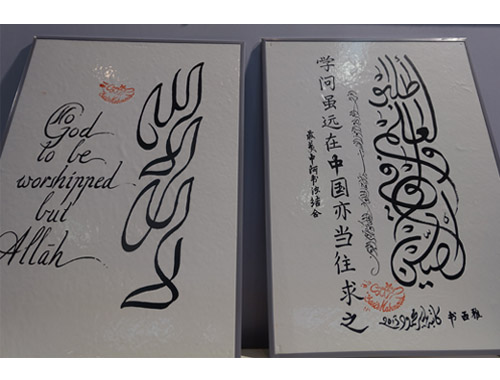 No
God
to be
worshipped
but
Allāh
لا إله إلا الله
学问虽远在中国亦当往求之
中阿书法结合
اطلبوا العلم ولو في الصين
2013